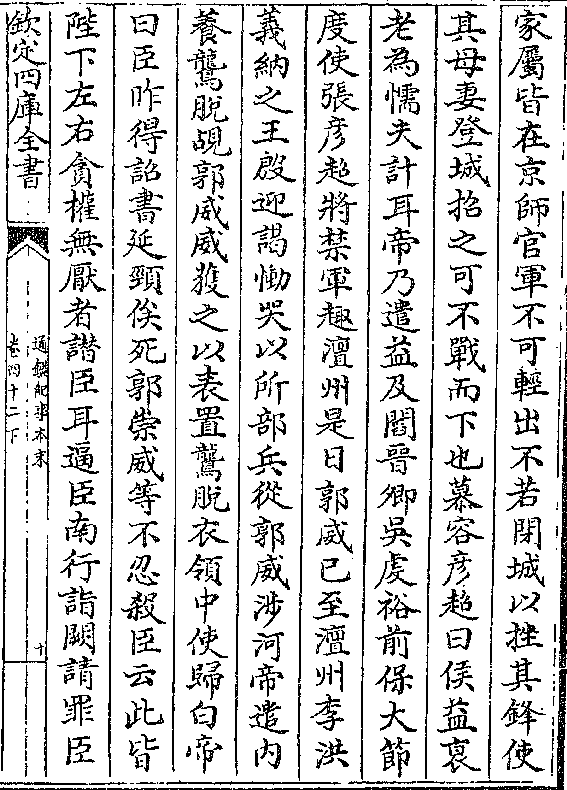 家屬皆在京師官軍不可輕出不若閉城以挫其鋒使
其母妻登城招之可不戰而下也慕容彦超曰侯益衰
老為懦夫計耳帝乃遣益及閻晉卿吳虔裕前保大節
度使張彦超將禁軍趣澶州是日郭威已至澶州李洪
義納之王殷迎謁慟哭以所部兵從郭威涉河帝遣内
養鸗脱覘郭威威獲之以表置鸗脱衣領中使歸白帝
曰臣昨得詔書延頸俟死郭崇威等不忍殺臣云此皆
陛下左右貪權無厭者譛臣耳逼臣南行詣闕請罪臣
欽定四庫全書
通鑑紀事本末
卷四十二下
十